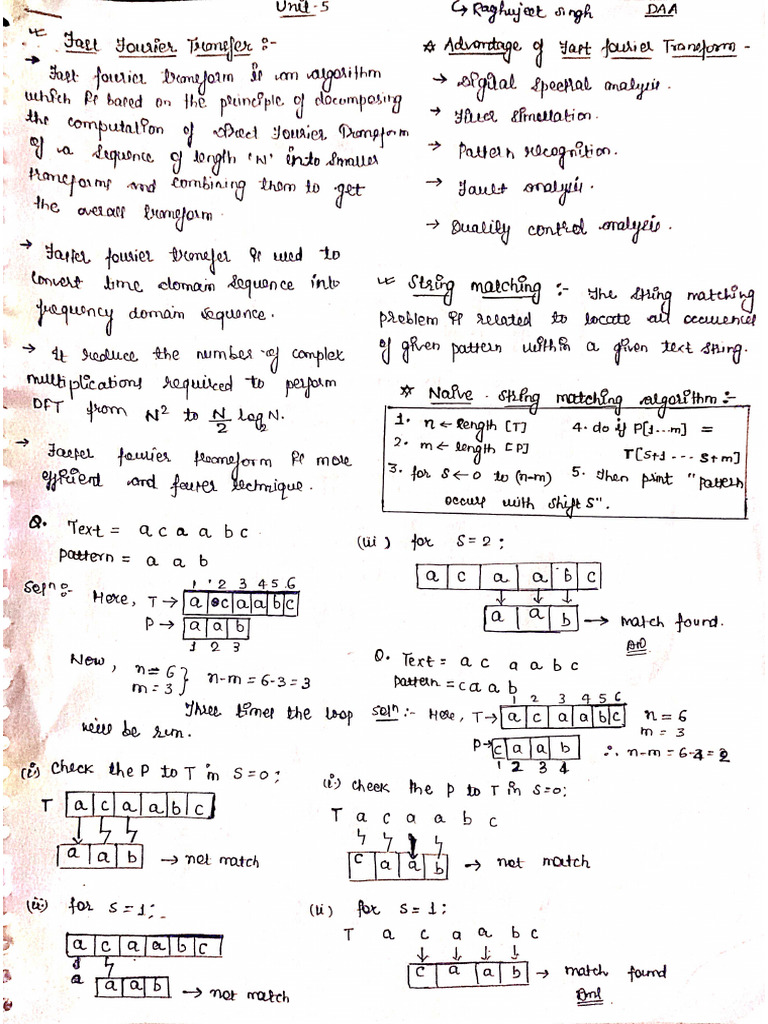 Unit-5
↳ Raghujeet Singh DAA
* Fast Fourier Transfer :-
→ Fast fourier transform is an algorithm
which is based on the principle of decomposing
the computation of Direct Fourier Transform
of a sequence of length 'N' into smaller
transforms and combining them to get
the overall transform.
→ Faster fourier transfer is used to
convert time domain sequence into
frequency domain sequence.
→ It reduce the number of complex
multiplications required to perform
DFT from N² to N/2 log₂N.
→ Faster fourier transform is more
efficient and faster technique.
* Advantage of Fast fourier Transform -
→ Digital Spectral analysis.
→ Filter Simellation.
→ Pattern recognition.
→ Fault analysis.
→ Quality control analysis.
* String matching :- The string matching
problem is related to locate all occurences
of given pattern within a given text string.
* Naive string matching algorithm :-
1. n ← length [T]
2. m ← length [P]
3. for S ← 0 to (n-m)
4. do if P[1...m] =
T[S+1 --- S+m]
5. Then print "pattern
occurs with shift S".
Q. Text = a c a a b c
pattern = a a b
Solⁿ:-
1 2 3 4 5 6
Here, T → a c a a b c
P → a a b
1 2 3
Now, n = 6
m = 3 } n-m = 6-3 = 3
Three times the loop
will be run.
(i) Check the P to T in S=0;
T a c a a b c
a a b → not match
(ii) for S=1;
a c a a b c
a a a b → not match
(iii) for S=2;
a c a a b c
a a b → match found.
Ans
Q. Text = a c a a b c
pattern = c a a b
1 2 3 4 5 6
Solⁿ:- Here, T → a c a a b c n = 6
m = 3
P → c a a b ∴ n-m = 6-4 = 2
1 2 3 4
(i) check the P to T in S=0;
T a c a a b c
c a a b → not match
(ii) for S=1;
T a c a a b c
c a a b → match found
Ans